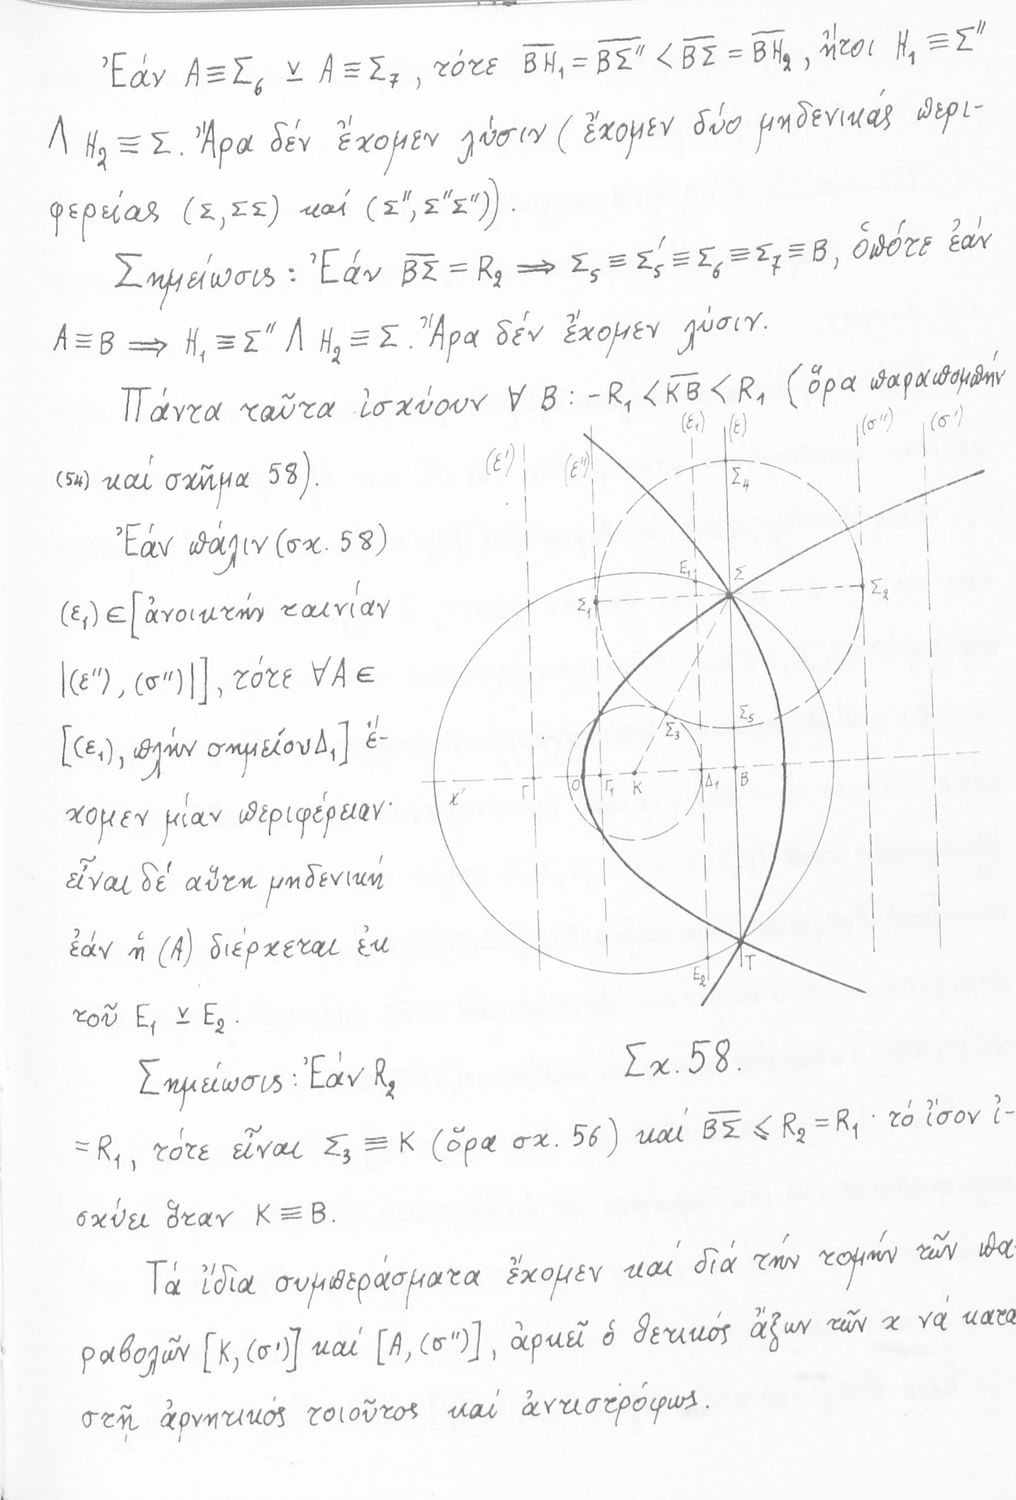 Ἐάν Α≡Σ₆ ⊻ Α≡Σ₇, τότε B̅H̅₁ = B̅Σ̅″ < B̅Σ̅ = B̅H̅₂, ἤτοι H₁ ≡ Σ″
Λ H₂ ≡ Σ. Ἄρα δέν ἔχομεν λύσιν (ἔχομεν δύο μηδενικάς περι-
φερείας (Σ, ΣΣ) καί (Σ″, Σ″Σ″)).
Σημείωσις: Ἐάν B̅Σ̅ = R₂ ⟹ Σ₅ ≡ Σ₅′ ≡ Σ₆ ≡ Σ₇ ≡ B, ὁπότε ἐάν
A ≡ B ⟹ H₁ ≡ Σ″ Λ H₂ ≡ Σ. Ἄρα δέν ἔχομεν λύσιν.
Πάντα ταῦτα ἰσχύουν ∀ B: -R₁ < K̅B̅ < R₁ (ὅρα παραπομπήν
(54) καί σχῆμα 58).
Ἐάν πάλιν (σχ. 58)
(ε₁) ∈ [ἀνοικτήν ταινίαν
|(ε″), (σ″)|], τότε ∀A ∈
[(ε₁), πλήν σημείου Δ₁] ἔ-
χομεν μίαν περιφέρειαν·
εἶναι δέ αὕτη μηδενική
ἐάν ἡ (A) διέρχεται ἐκ
τοῦ E₁ ⊻ E₂.
(ε′) (ε″) (ε₁) (ε) (σ″) (σ′)
Σ₄
E₁ Σ
Σ₁ Σ₂
Σ₃ Σ₅
x′ Γ O Γ₁ K Δ₁ B
E₂ T
Σχ. 58.
Σημείωσις: Ἐάν R₂
= R₁, τότε εἶναι Σ₃ ≡ K (ὅρα σχ. 56) καί B̅Σ̅ ⩽ R₂ = R₁· τό ἴσον ἰ-
σχύει ὅταν K ≡ B.
Τά ἴδια συμπεράσματα ἔχομεν καί διά τήν τομήν τῶν πα-
ραβολῶν [K, (σ′)] καί [A, (σ″)], ἀρκεῖ ὁ θετικός ἄξων τῶν x νά κατα
στῇ ἀρνητικός τοιοῦτος καί ἀντιστρόφως.